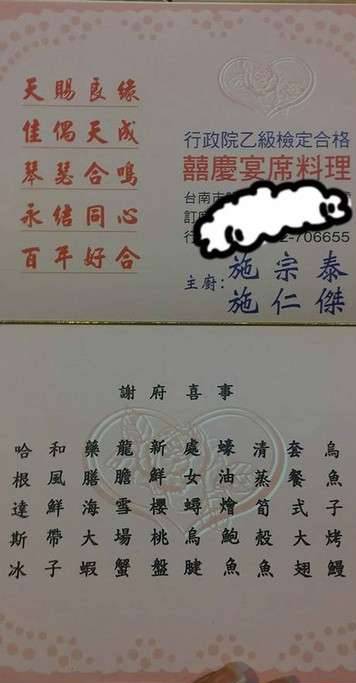 天賜良緣
佳偶天成
琴瑟合鳴
永結同心
百年好合
行政院乙級檢定合格
囍慶宴席料理
台南市
訂
行 2-706655
主廚：施宗泰
施仁傑
謝府喜事
烏魚子烤鰻
套餐式大翅
清蒸筍殼魚
蠔油燴鮑魚
處女蟳烏腱
新鮮櫻桃盤
龍膽雪場蟹
藥膳海大蝦
和風鮮帶子
哈根達斯冰